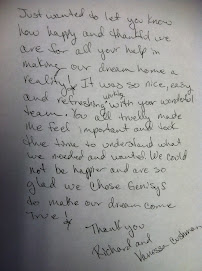 Just wanted to let you know
how happy and thankful we
are for all your help in
making our dream home a
reality! It was so nice, easy
and refreshing working with your wonderful
team. You all truely made
me feel important and took
the time to understand what
we needed and wanted. We could
not be happier and are so
glad we chose Genisys
to make our dream come
true!
Thank you
Richard and
Vanessa